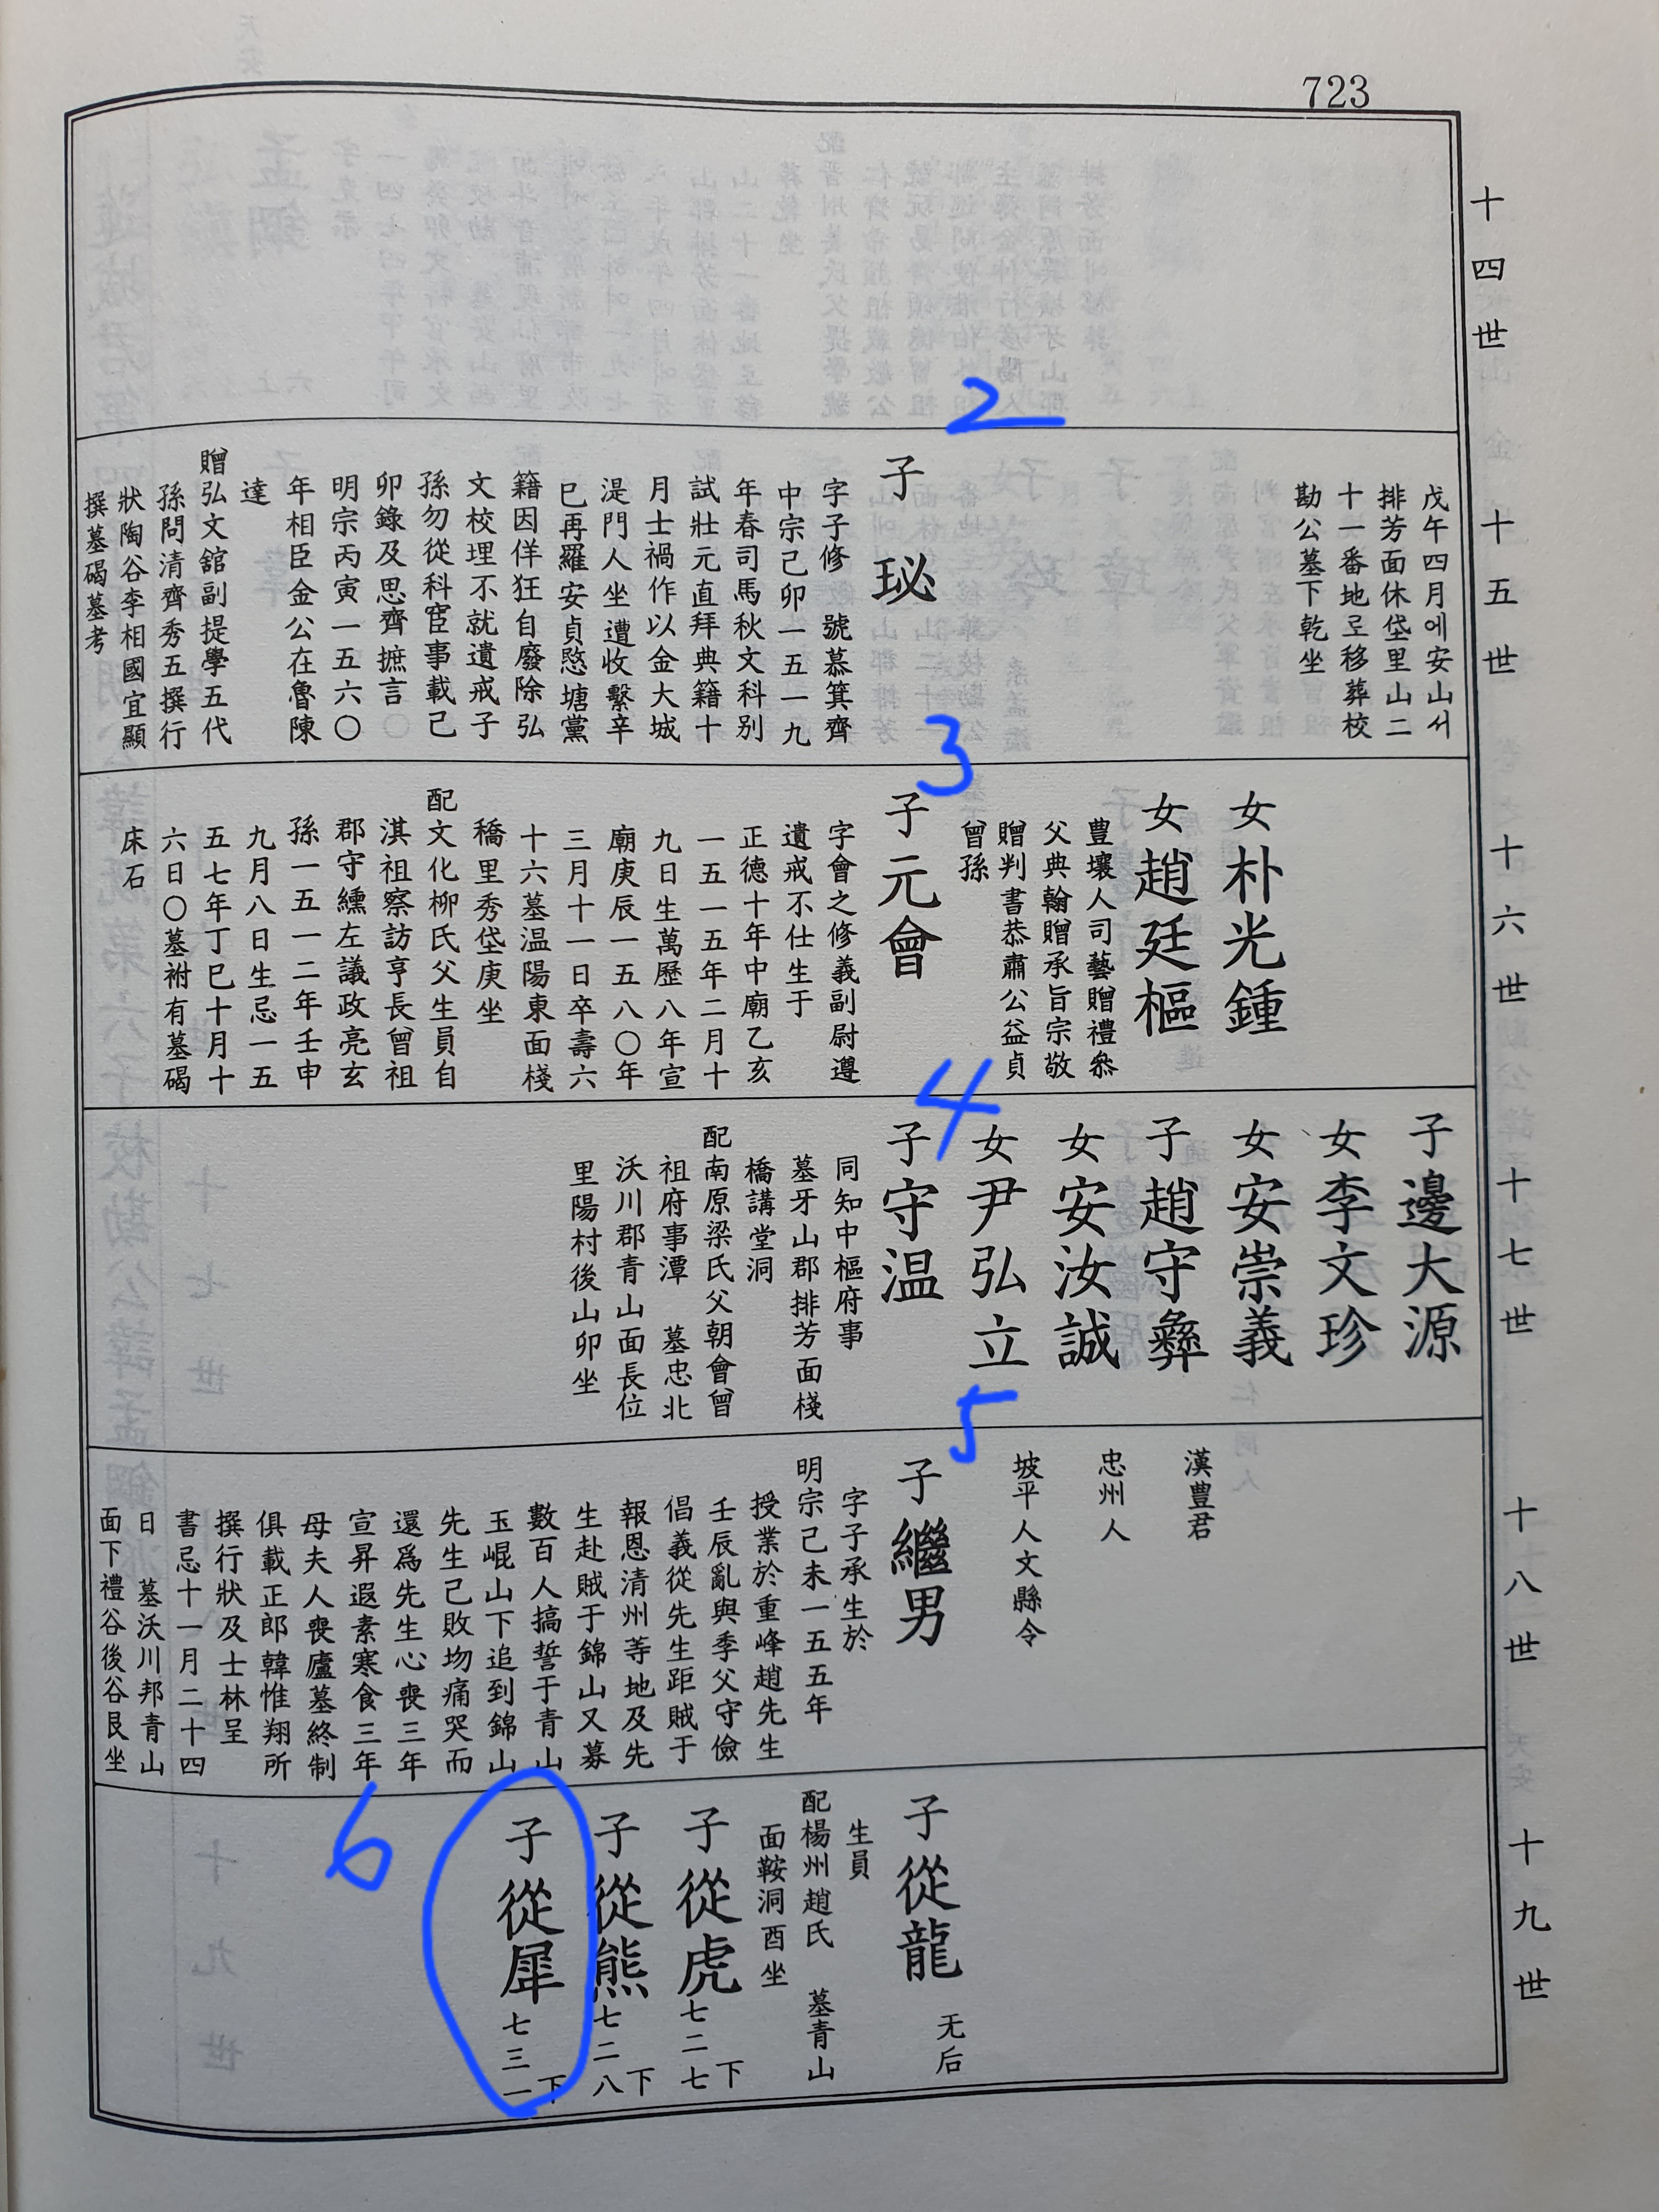 723
十四世
十五世
戊午四月에安山서
排芳面休垈里山二
十一番地로移葬校
勘公墓下乾坐
2
子珌
字子修 號慕箕齊
中宗己卯一五一九
年春司馬秋文科別
試壯元直拜典籍十
月士禍作以金大城
湜門人坐遭收繫辛
巳再羅安貞愍塘黨
籍因佯狂自廢除弘
文校理不就遺戒子
孫勿從科宦事載己
卯錄及思齊摭言
明宗丙寅一五六〇
年相臣金公在魯陳
達
贈弘文舘副提學五代
孫問清齊秀五撰行
狀陶谷李相國宜顯
撰墓碣墓考
十六世
女朴光鍾
女趙廷樞
豊壤人司藝贈禮叅
父典翰贈承旨宗敬
贈判書恭肅公益貞
曾孫
3
子元會
字會之修義副尉遵
遺戒不仕生于
正德十年中廟乙亥
一五一五年二月十
九日生萬歷八年宣
廟庚辰一五八〇年
三月十一日卒壽六
十六墓温陽東面棧
穚里秀垈庚坐
配文化柳氏父生員自
淇祖察訪亨長曾祖
郡守纁左議政亮玄
孫一五一二年壬申
九月八日生忌一五
五七年丁巳十月十
六日〇墓祔有墓碣
床石
十七世
子邊大源
女李文珍
女安崇義
子趙守彜
女安汝誠
女尹弘立
4
子守温
同知中樞府事
墓牙山郡排芳面棧
橋講堂洞
配南原梁氏父朝會曾
祖府事潭 墓忠北
沃川郡青山面長位
里陽村後山卯坐
十八世
漢豊君
忠州人
坡平人文縣令
5
子繼男
字子承生於
明宗己未一五五年
授業於重峰趙先生
壬辰亂與季父守儉
倡義從先生距賊于
報恩清州等地及先
生赴賊于錦山又募
數百人搞誓于青山
玉崐山下追到錦山
先生己敗圽痛哭而
還爲先生心喪三年
宣昇遐素寒食三年
母夫人喪廬墓終制
俱載正郎韓惟翔所
撰行狀及士林呈
書忌十一月二十四
日 墓沃川邦青山
面下禮谷後谷艮坐
十九世
子從龍 无后
生員
配楊州趙氏 墓青山
面鞍洞酉坐
子從虎 七二七下
子從熊 七二八下
6
子從犀 七三一下